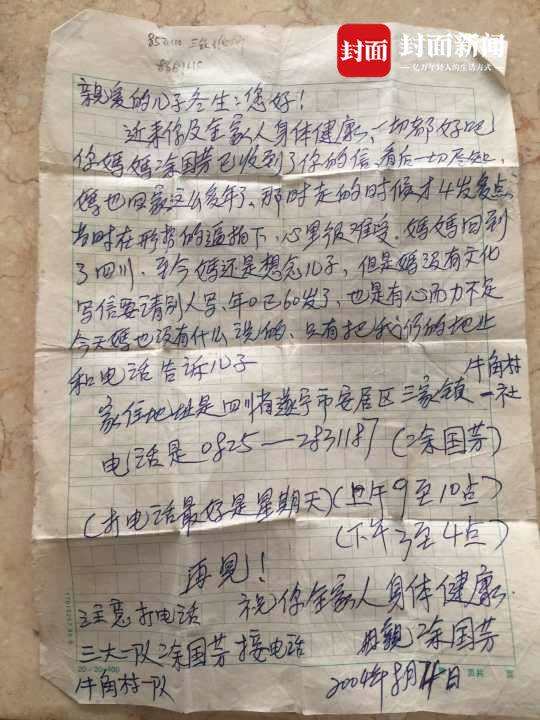 封面
封面新闻
亿万年轻人的生活方式
亲爱的儿子冬生:您好!
近来你及全家人身体健康、一切都好吧
你妈妈涂国芳已收到了你的信、看后一切尽知,
妈也回家这么多年了、那时走的时候才4岁多点
当时在形势的逼拍下、心里很难受、妈妈回到
了四川、至今妈还是想念儿子,但是妈没有文化
写信要请别人写、年0已60岁了,也是有心而力不足
今天妈也没有什么说的、只有把我们的地址
和电话告诉儿子
牛角村
家住地址是四川省遂宁市安居区三家镇一社
电话是0825—2831187(涂国芳)
(打电话最好是星期天)(上午9至10点)
(下午3至4点)
再见!
注意打电话 祝你全家人身体健康.
三大二队涂国芳接电话 母親涂国芳
牛角村一队 2004年8月4日